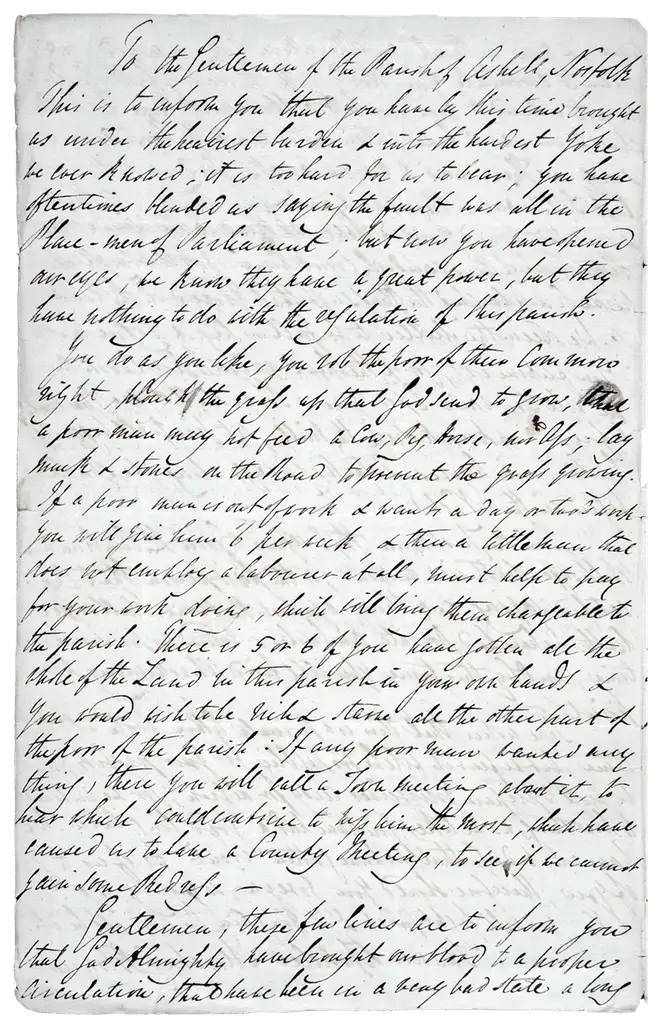 To the Gentlemen of the Parish of Ashell, Norfolk
This is to inform you that you have by this time brought
us under the heaviest burden & into the hardest Yoke
we ever knowed; it is too hard for us to bear; you have
oftentimes blinded us saying the fault was all in the
Place-men of Parliament; but now you have opened
our eyes, we know they have a great power, but they
have nothing to do with the regulation of this parish.
You do as you like, you rob the poor of their Common
right, plough the grass up that God send to grow, that
a poor man may not feed a Cow, Pig, Horse, nor Ass; lay
muck & stones on the Road to prevent the grass growing.
If a poor man is out of work & wants a day or two's work
you will give him 6 per week, & then a little man that
does not employ a labourer at all, must help to pay
for your work doing, which will bring them chargeable to
the parish. There is 5 or 6 of you have gotten all the
whole of the Land in this parish in your own hands &
you would wish to be rich & starve all the other part of
the poor of the parish: If any poor man wanted any
thing, there you will call a Town meeting about it, to
hear which could contrive to hiss him the most, which have
caused us to have a County Meeting, to see if we cannot
gain some Redress —
Gentlemen, these few lines are to inform you
that God Almighty have brought our blood to a proper
circulation, that have been in a very bad state a long